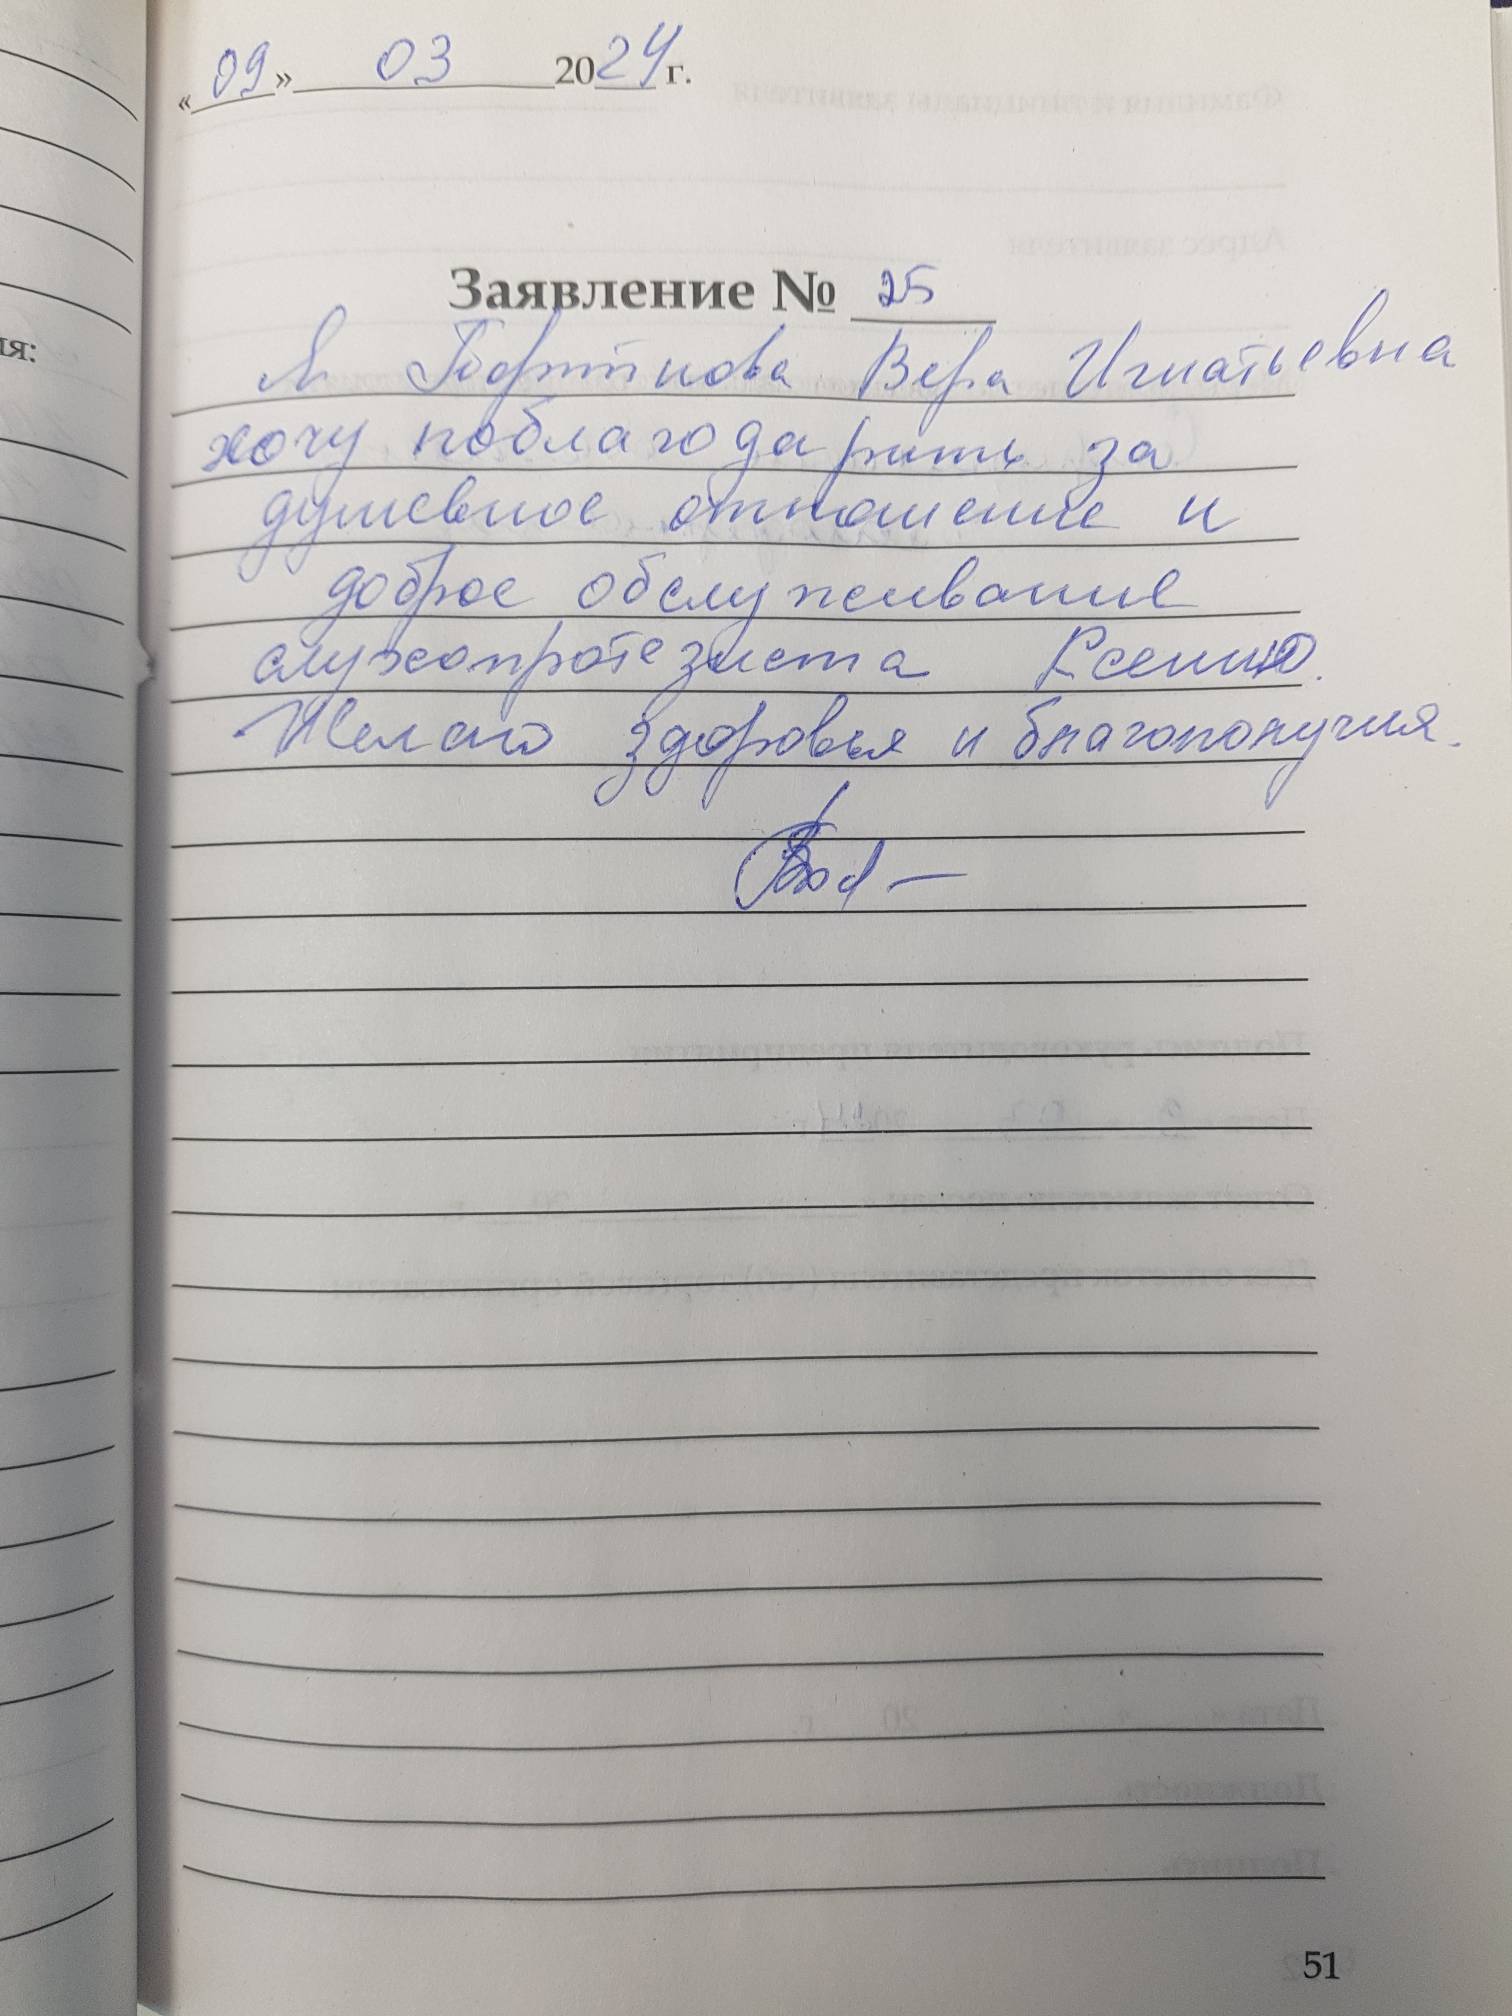 «09» 03 2024 г.
Заявление № 25
ия:
Я Портнова Вера Игнатьевна
хочу поблагодарить за
душевное отношение и
доброе обслуживание
слухопротезиста Ксению.
Желаю здоровья и благополучия.
51